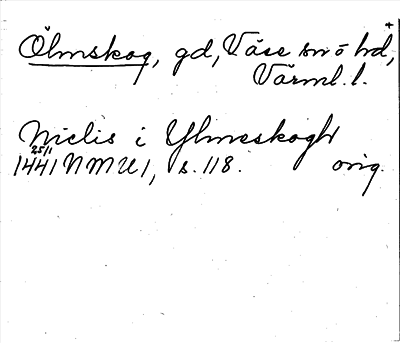 Ölmskog, gd, Väse sn o hd,
Värml. l.
Niclis i Ylmeskogh
25/1
1441 NMU 1, s. 118. orig.